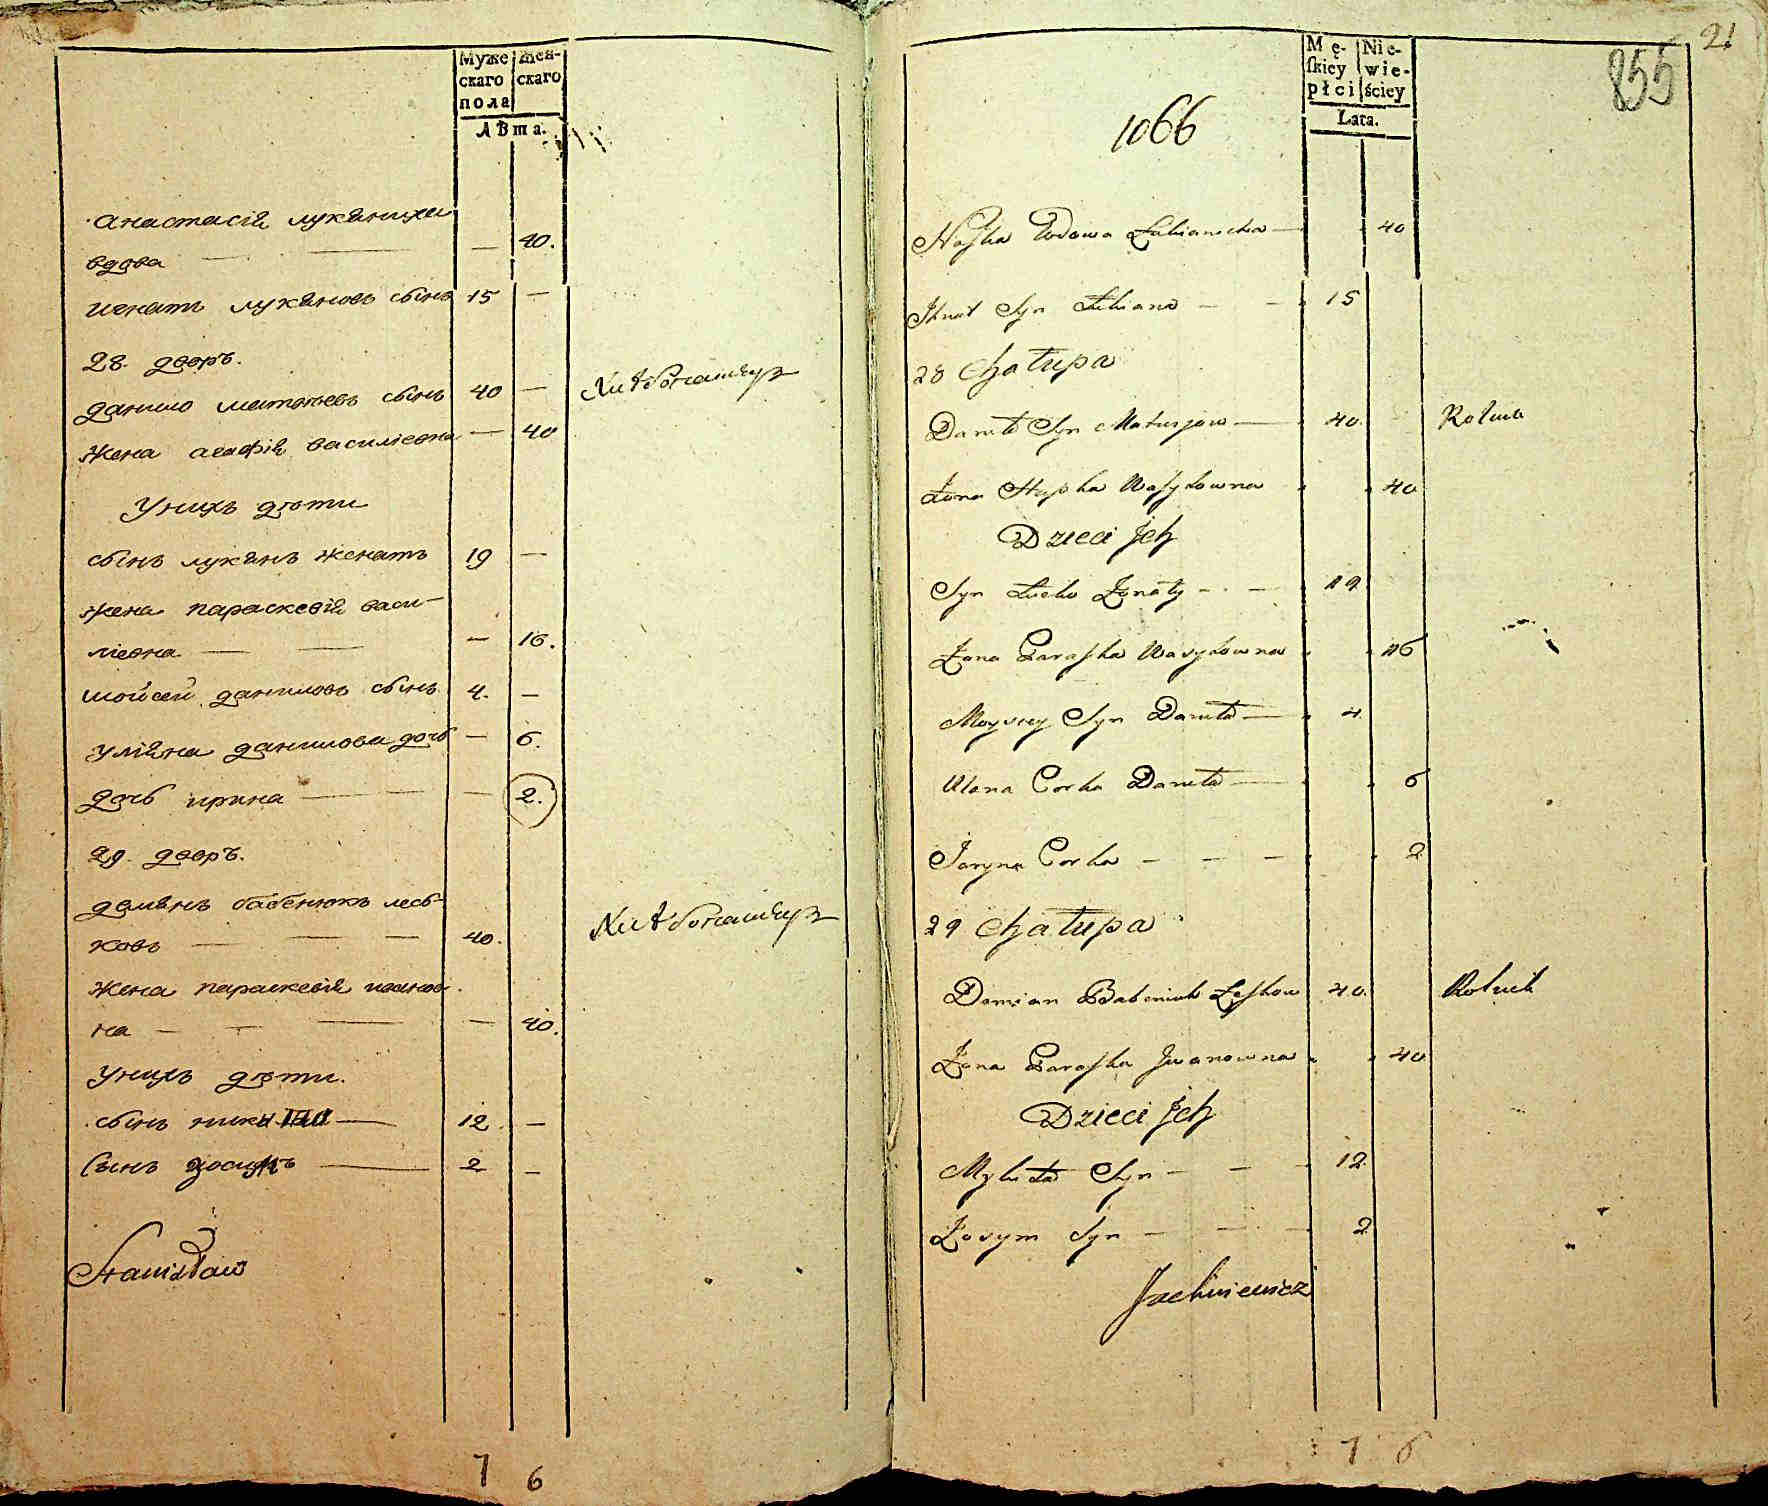 Муже
скаго
пола
Жен-
скаго
Лѣта.
анастасія лукяниха
вдова — — — 40.
игнатъ лукяновъ сынъ 15 —
28. дворъ.
данило матвѣевъ сынъ 40 —
жена агафія василіевна — 40
у нихъ дѣти
сынъ лукянъ женатъ 19 —
жена параскевія васи-
ліевна — — — 16.
мойсей даниловъ сынъ 4. —
уліяна данилова дочь — 6.
дочь ирина — — — 2.
29. дворъ.
демянъ бабенюкъ лесь-
ковъ — — — 40.
жена параскевія иванов-
на — — — — 40.
у нихъ дѣти.
сынъ — 12 —
Сынъ зосимъ — 2 —
Stanisław
7 6
21
855
Mę-
skiey
płci
Nie-
wie-
ściey
Lata.
1066
Naſtka Wdowa Lukianicha — 40
Ihnat Syn Lukiana — — 15
28 Chałupa
Daniło Syn Matwijow — 40. Rolnik
Żona Hapka Wasylowna 40
Dzieci Jch
Syn Łucko Żonaty - - 19
Żona Paraſka Wasylowna 16
Moysiey Syn Daniła — 4.
Ulana Corka Daniła — 6
Jaryna Corka — — — 2
29 Chałupa
Demian Babeniuk Leſkow 40. Rolnik
Żona Paraſka Jwanowna 40
Dzieci Jch
Mykita Syn — — 12.
Zosym Syn — — 2
Jachniewicz
7 6